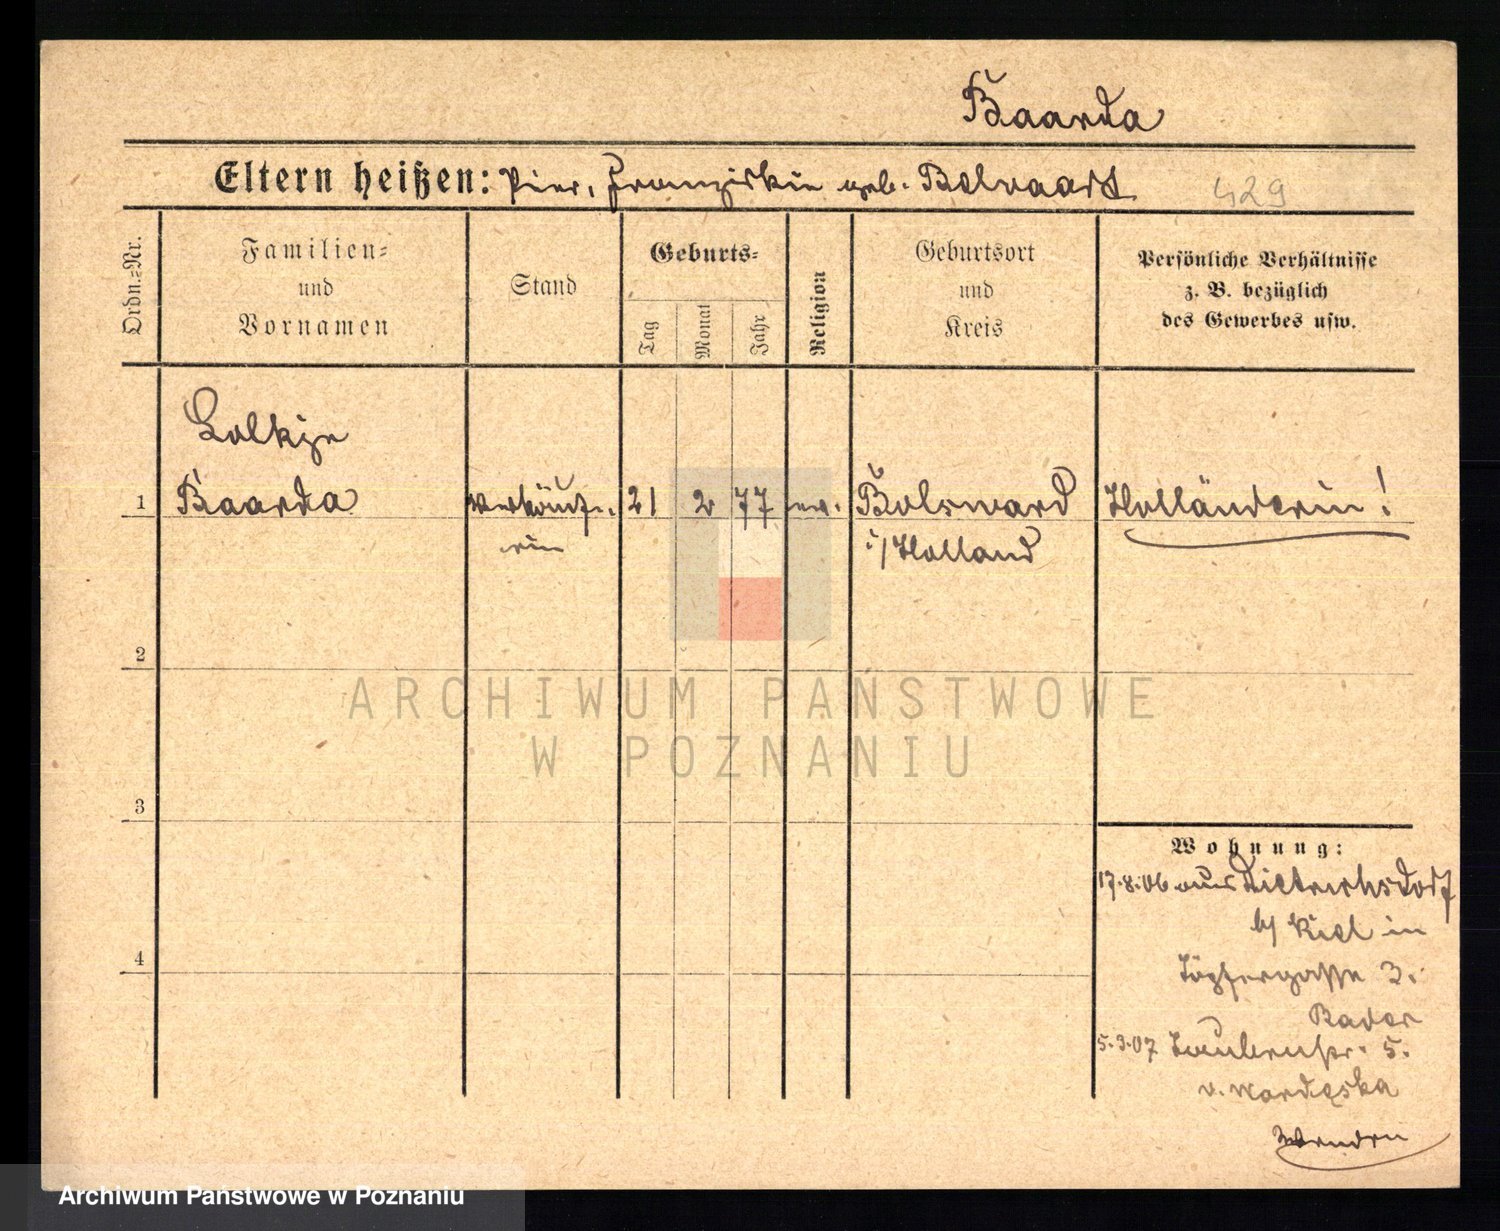 Baarda
Eltern heißen: Pier, Franziskin geb. Bolvaart
429
Ordn.-Nr.
Familien- und Vornamen
Stand
Geburts-
Tag
Monat
Jahr
Religion
Geburtsort und Kreis
Persönliche Verhältnisse z. B. bezüglich des Gewerbes usw.
Lolkje
1 Baarda Verkäufe- 21 2 77 ev. Bolsward Holländerin!
rin i/Holland
2
ARCHIWUM PAŃSTWOWE
W POZNANIU
3
Wohnung:
17.8.06 aus Dietrichsdorf
b/ Kiel in
Töpfergasse 3.
Bader
4
5.3.07 Taubenstr. 5.
v.
Archiwum Państwowe w Poznaniu